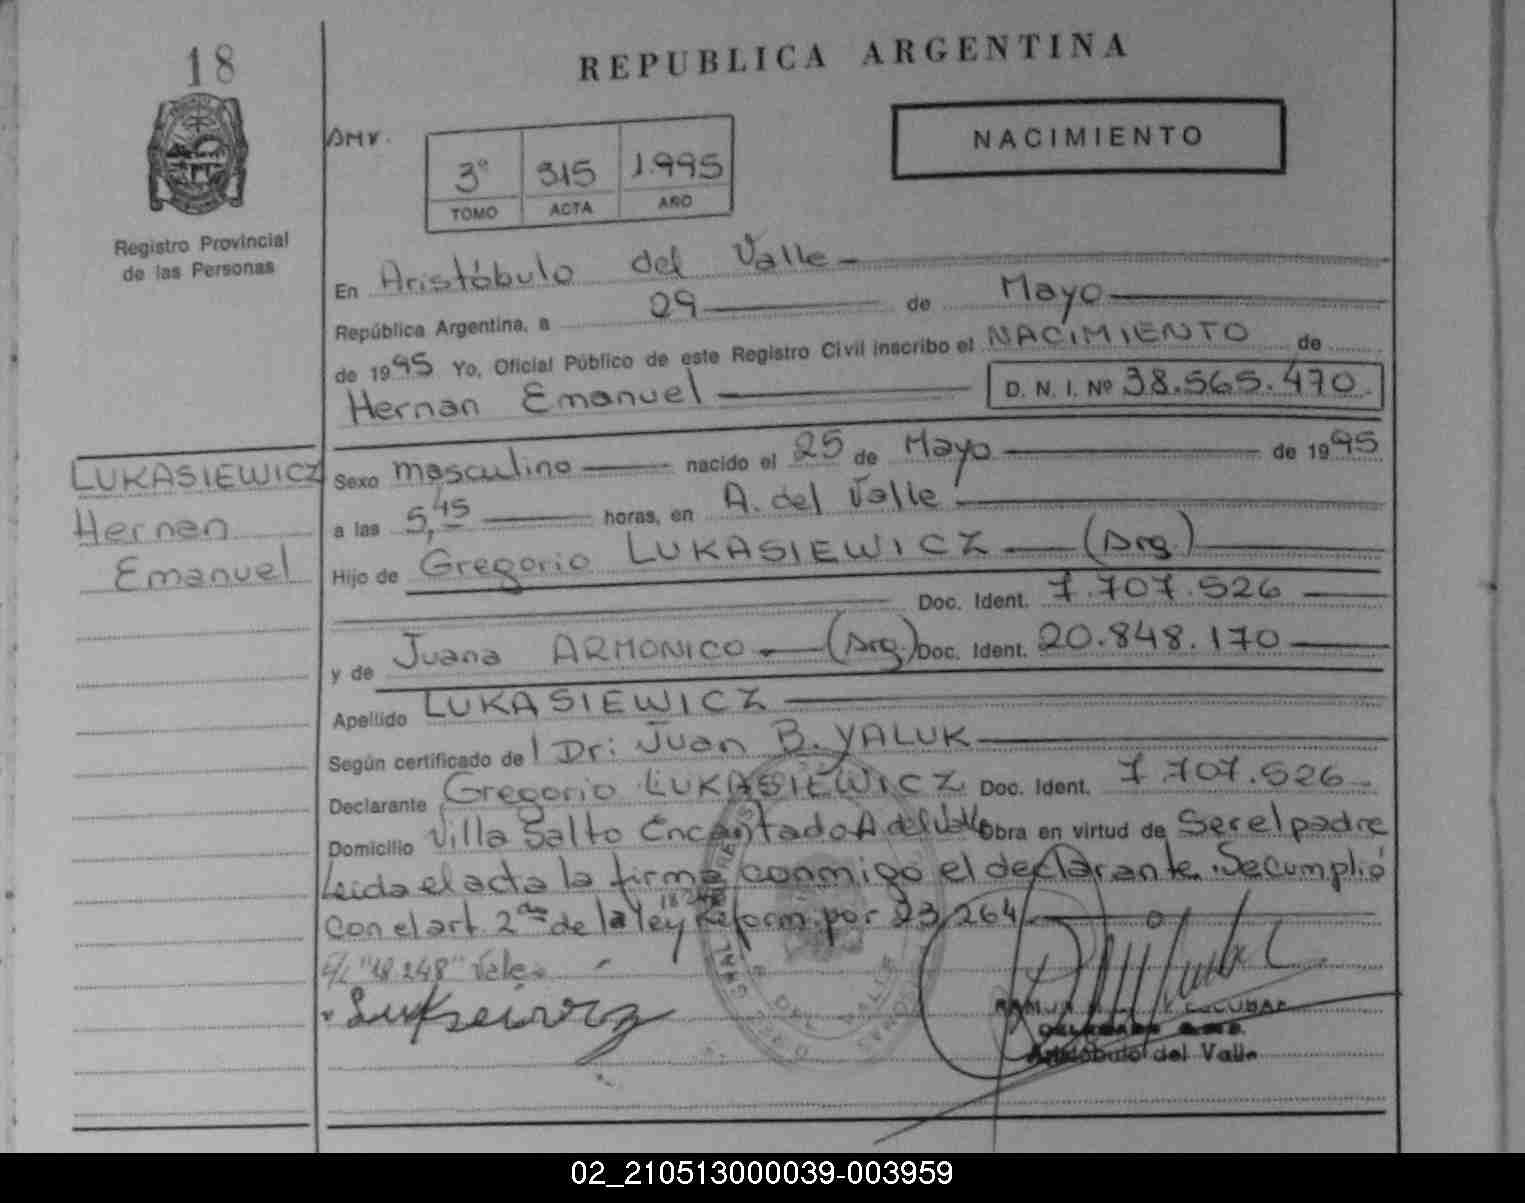 18
REPUBLICA ARGENTINA
NACIMIENTO
3º 315 1.995
TOMO ACTA AÑO
Registro Provincial
de las Personas
En Aristóbulo del Valle
República Argentina, a 29 de Mayo
de 1995 Yo, Oficial Público de este Registro Civil inscribo el NACIMIENTO de
Hernan Emanuel D. N. I. Nº 38.565.470.
LUKASIEWICZ
Hernan
Emanuel
Sexo masculino nacido el 25 de Mayo de 1995
a las 5,45 horas, en A. del Valle
Hijo de Gregorio LUKASIEWICZ (Arg.)
Doc. Ident. 7.707.526
y de Juana ARMONICO (Arg.) Doc. Ident. 20.848.170
Apellido LUKASIEWICZ
Según certificado de l Dr: Juan B. YALUK
Declarante Gregorio LUKASIEWICZ Doc. Ident. 7.707.526
Domicilio Villa Salto Encantado A del Valle Obra en virtud de Ser el padre
Leida el acta la firma conmigo el declarante. Se cumplió
con el art. 2do de la ley 18.248 Reform. por 23.264
E/L "18.248" Vale.
Aristóbulo del Valle
02_210513000039-003959